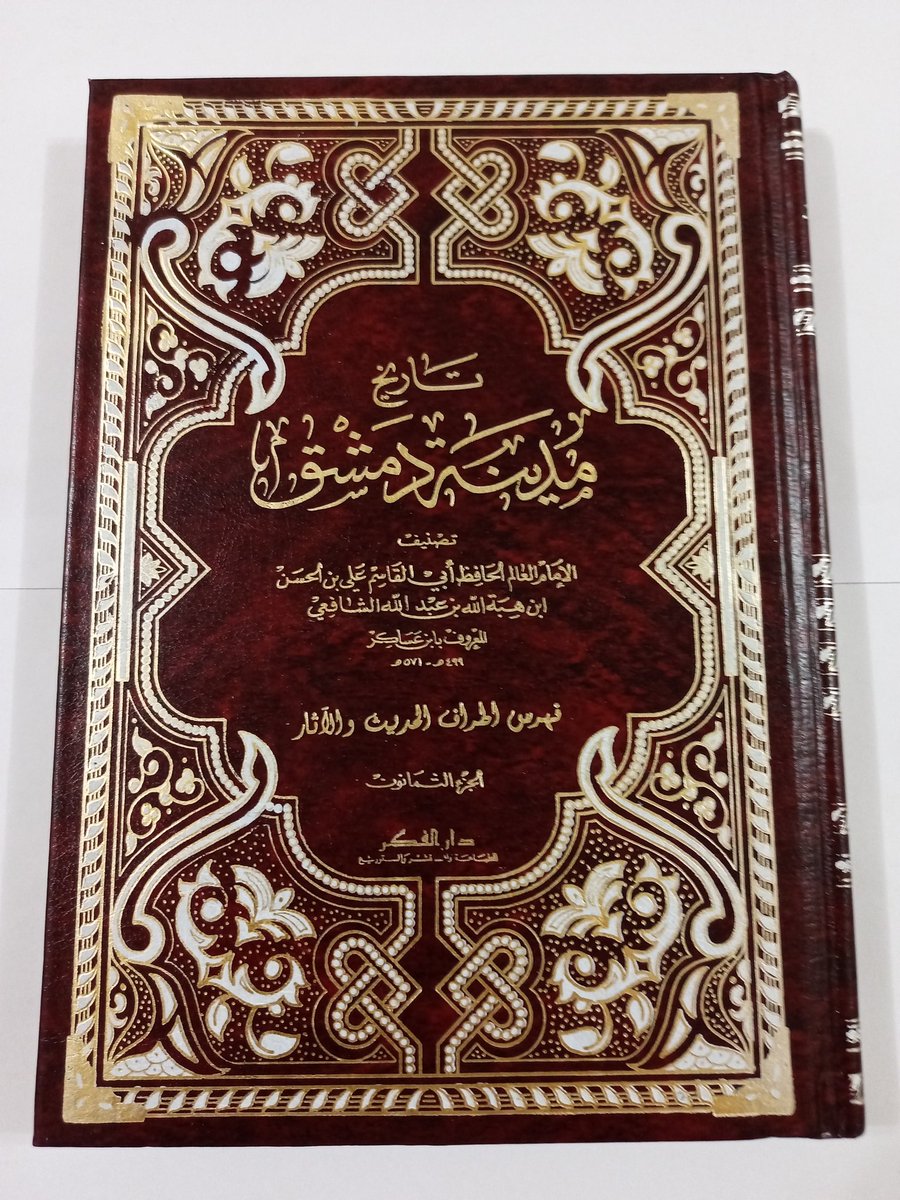 تاريخ
مدينة دمشق
تصنيف
الإمام العالم الحافظ أبي القاسم علي بن الحسن
ابن هبة الله بن عبد الله الشافعي
المعروف بابن عساكر
٤٩٩هـ - ٥٧١هـ
فهرس أطراف الحديث والآثار
الجزء الثمانون
دار الفكر
للطباعة والنشر والتوزيع